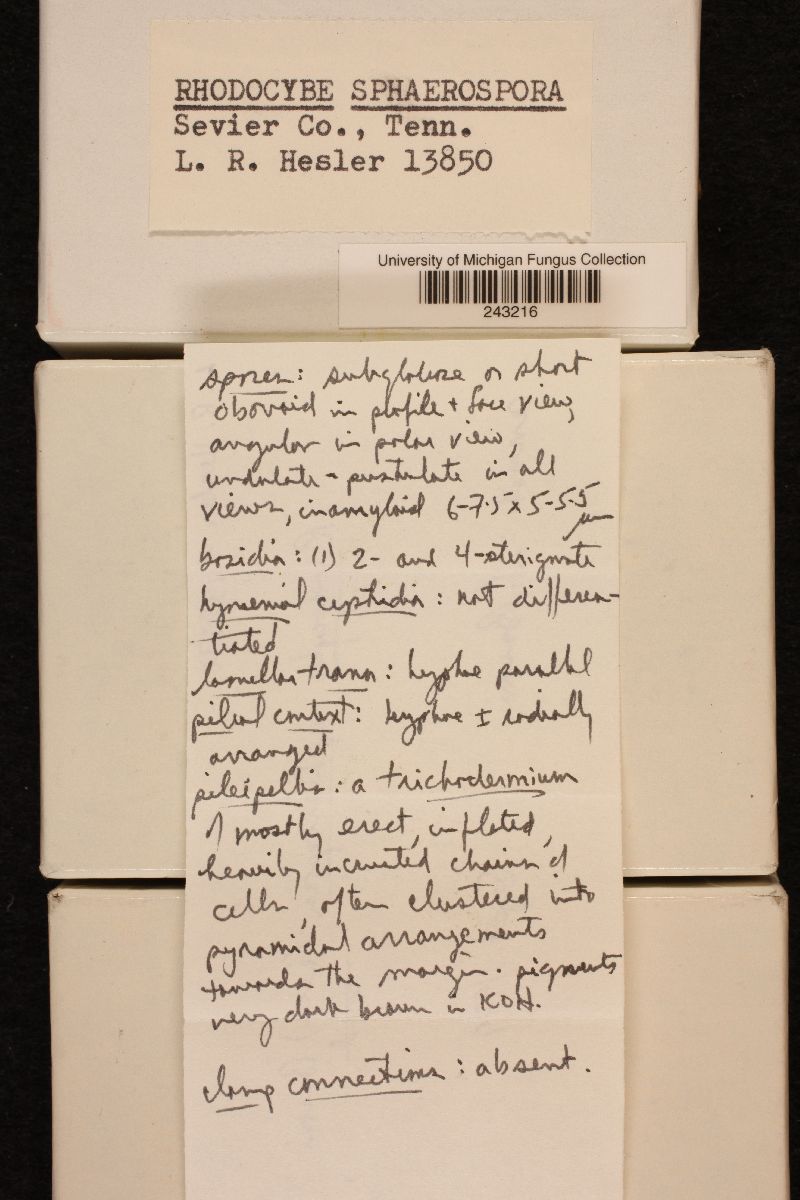 RHODOCYBE SPHAEROSPORA
Sevier Co., Tenn.
L. R. Hesler 13850
University of Michigan Fungus Collection
243216
spores: subglobose or short
obovoid in profile + face view,
angular in polar view,
undulate-pustulate in all
views, inamyloid 6-7.5 x 5-5.5
μm
basidia: (1) 2- and 4-sterigmate
hymenial cystidia: not differen-
tiated
lamellar trama: hyphae parallel
pileal context: hyphae ± radially
arranged
pileipellis: a trichodermium
of mostly erect, inflated,
heavily incrusted chains of
cells, often clustered into
pyramidal arrangements
towards the margin. pigments
very dark brown in KOH.
clamp connections: absent.